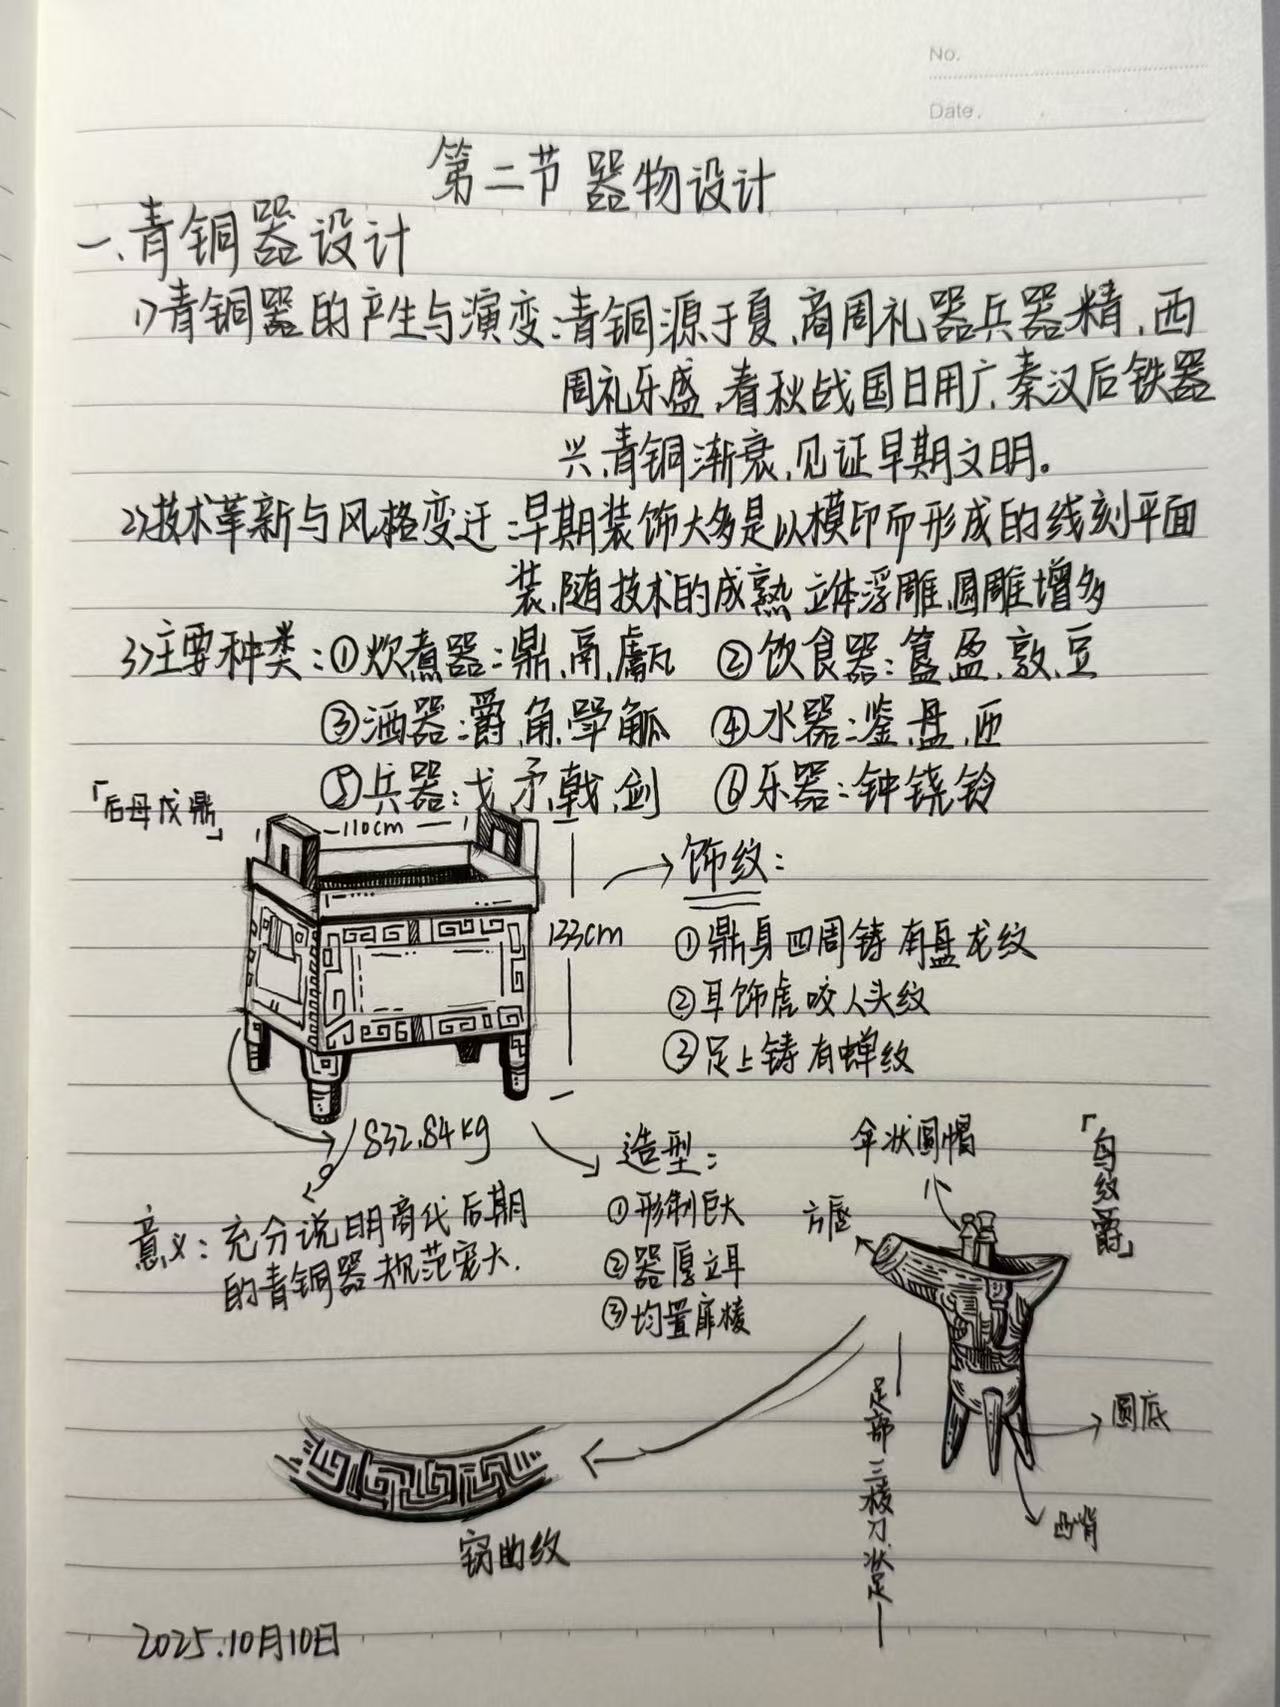 No.
Date.
第二节 器物设计
一、青铜器设计
1)青铜器的产生与演变:青铜源于夏、商周礼器兵器精、西
周礼乐盛、春秋战国日用广、秦汉后铁器
兴、青铜渐衰、见证早期文明。
2)技术革新与风格变迁:早期装饰大多是以模印而形成的线刻平面
装,随技术的成熟,立体浮雕,圆雕增多
3)主要种类:①炊煮器:鼎,鬲,甗 ②饮食器:簋,盈,敦,豆
③酒器:爵,角,斝,觚 ④水器:鉴,盘,匜
⑤兵器:戈,矛,戟,剑 ⑥乐器:钟铙铃
「后母戊鼎」
110cm
133cm
饰纹:
①鼎身四周铸有盘龙纹
②耳饰虎咬人头纹
③足上铸有蝉纹
832.84kg
意义:充分说明商代后期
的青铜器规范宠大.
造型:
①形制巨大
②器厚立耳
③均置扉棱
「鸟纹爵」
伞状圆帽
圆底
凸背
足部三棱刀状足
窃曲纹
2025.10月10日